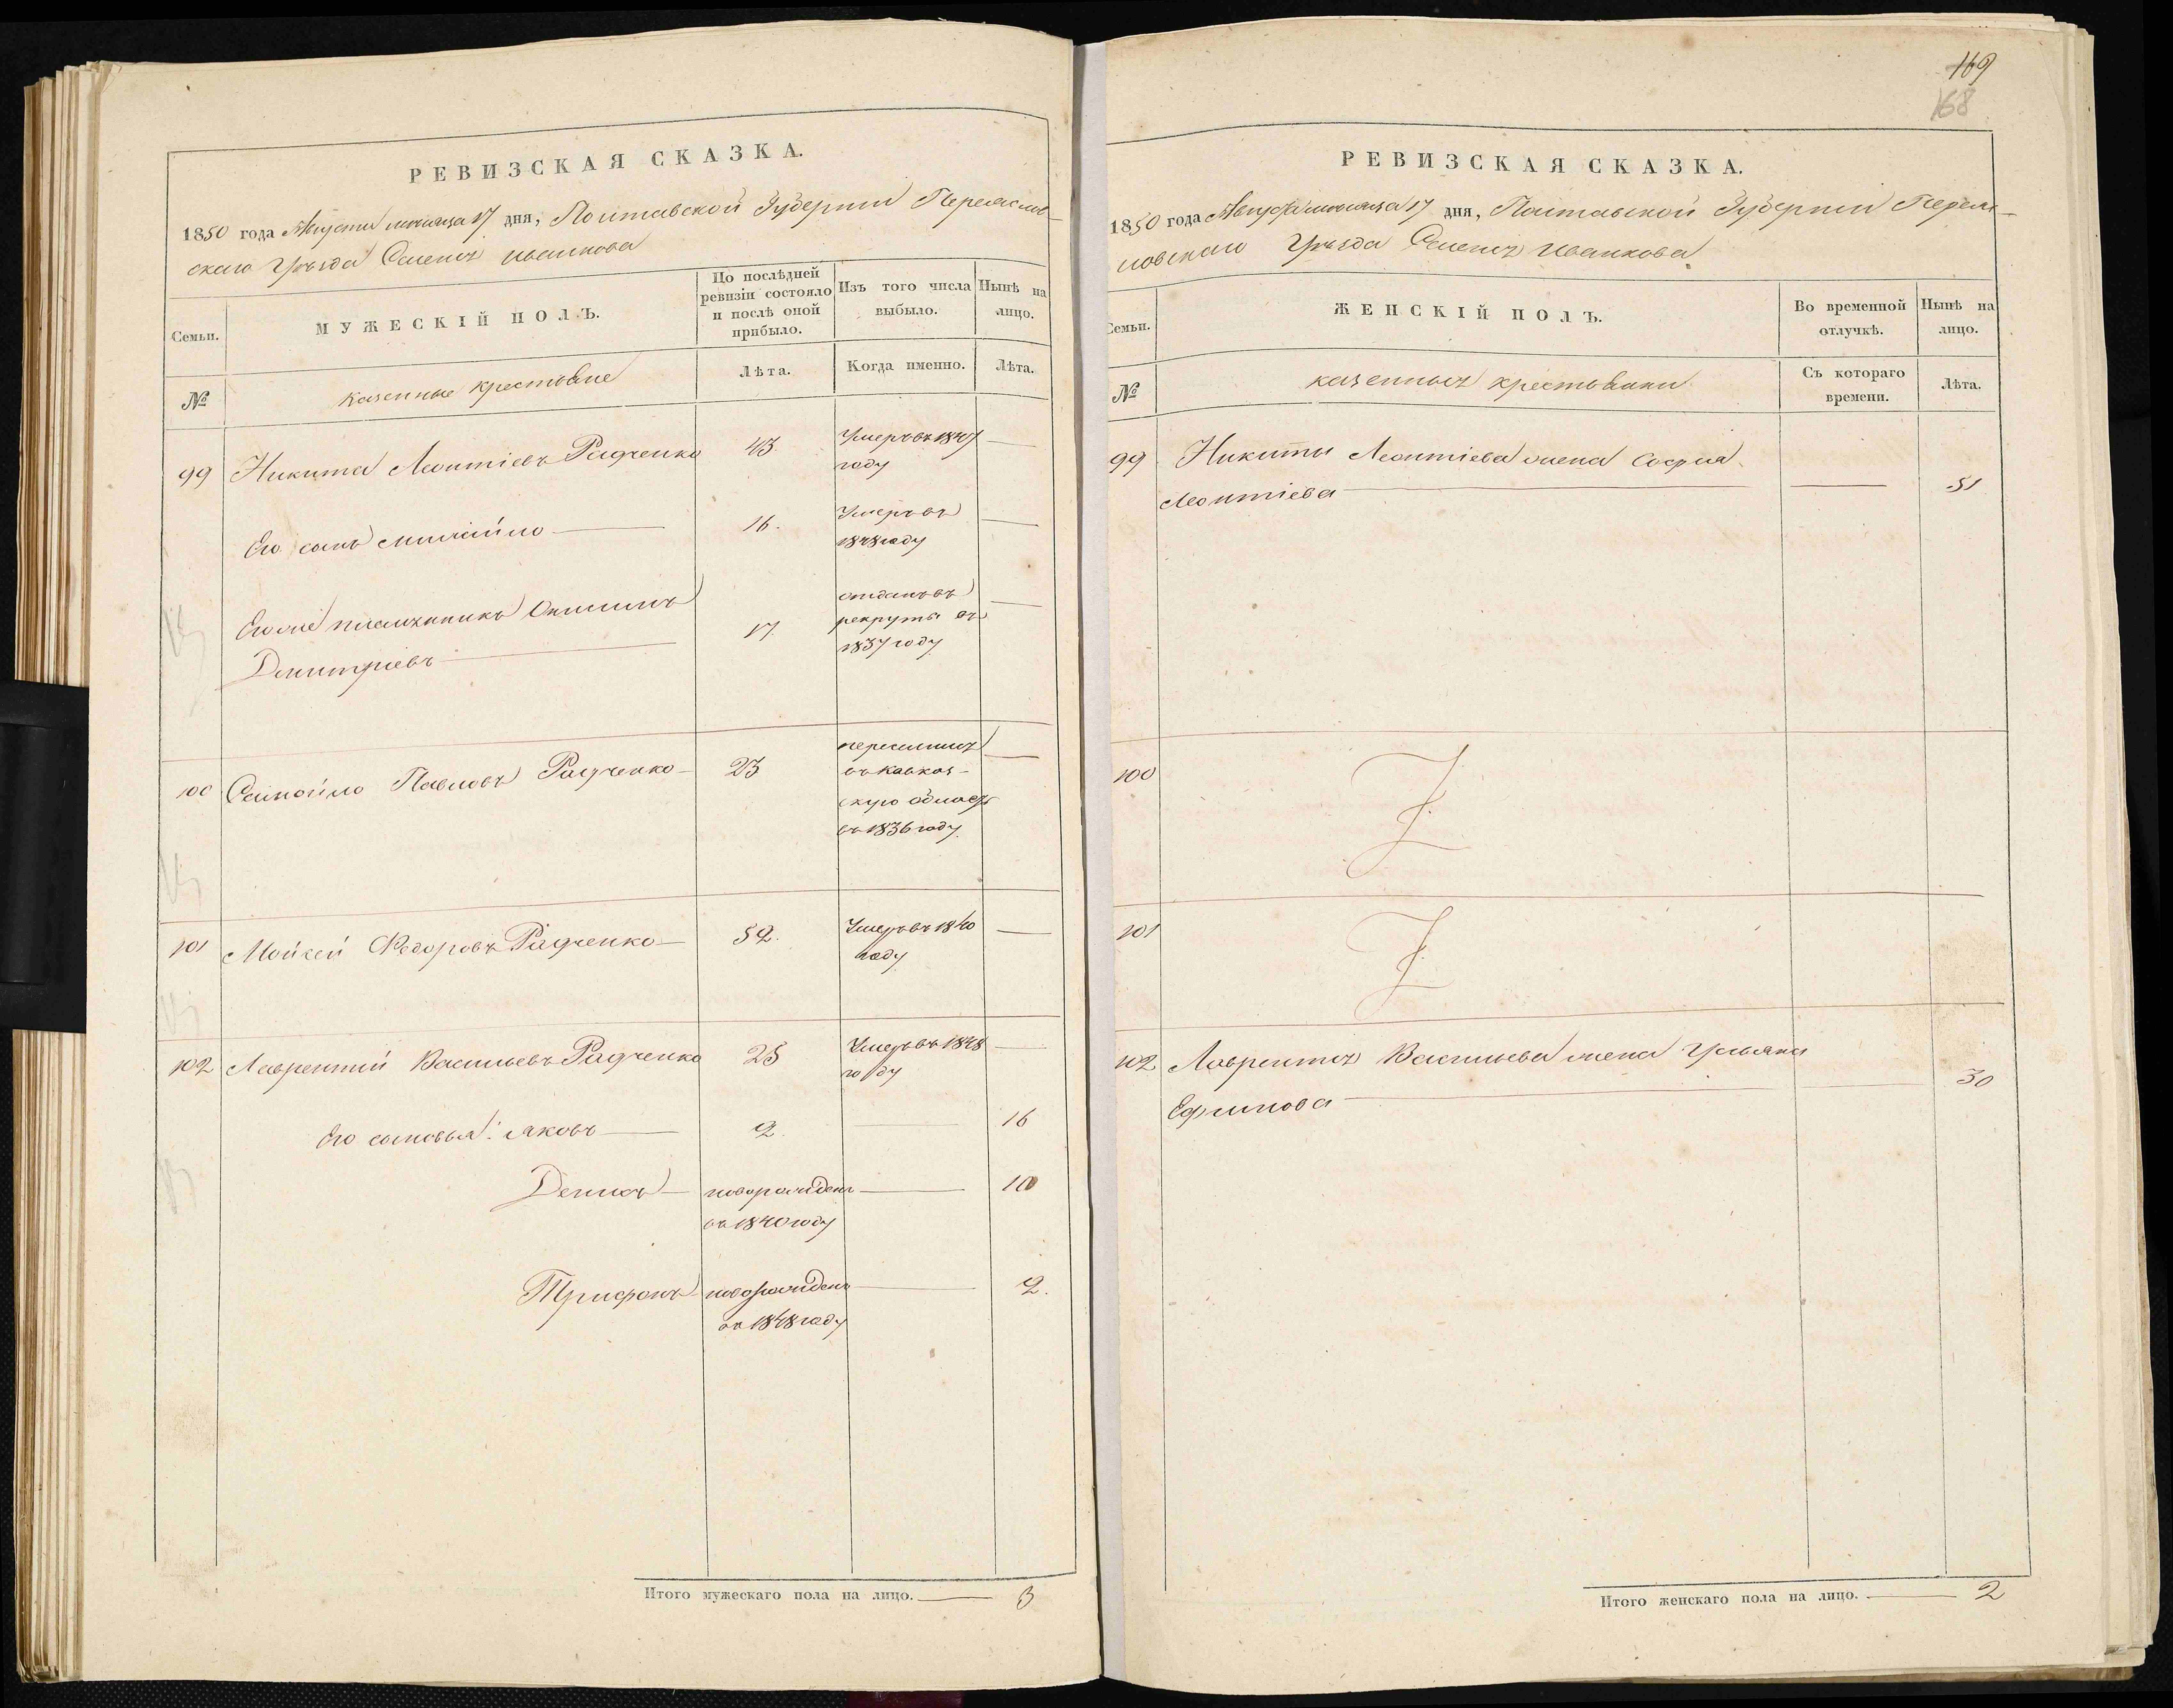 РЕВИЗСКАЯ СКАЗКА.
1850 года Августа месяца 17 дня, Полтавской Губернии Переяслов-
скаго Уѣзда Селенія Иванкова
Семьи.
МУЖЕСКІЙ ПОЛЪ.
По послѣдней ревизіи состояло и послѣ оной прибыло.
Изъ того числа выбыло.
Нынѣ на лицо.
№
казенные крестьяне
Лѣта.
Когда именно.
Лѣта.
99 Никита Леонтіевъ Радченко 43 Умеръ въ 1847
году
Его сынъ Михайло 16. Умеръ въ
1848 году
Его же племянникъ 17. отданъ въ
Дмитріевъ рекруты въ
1837 году
100 Самойло Павловъ Радченко 23 переселился
въ Кавказ-
скую область
въ 1836 году
101 Мойсей Федоровъ Радченко 52. Умеръ въ 1840
году
102 Лаврентий Васильевъ Радченко 25 Умеръ въ 1848
году
Его сыновья: Яковъ 2. 16
Денисъ новорожденъ 10
въ 1840 году
Трифонъ новорожденъ 2.
въ 1848 году
Итого мужескаго пола на лицо. 3
169
168
РЕВИЗСКАЯ СКАЗКА.
1850 года Августа месяца 17 дня, Полтавской Губерніи Переяс-
ловскаго Уѣзда Селенія Иванкова
Семьи.
ЖЕНСКІЙ ПОЛЪ.
Во временной отлучкѣ.
Нынѣ на лицо.
№
казенныхъ крестьянки
Съ котораго времени.
Лѣта.
99 Никиты Леонтіева жена Софиа
Леонтіева 51
100
101
102 Лаврентія Васильева жена Ульяна
Ефимова 30
Итого женскаго пола на лицо. 2